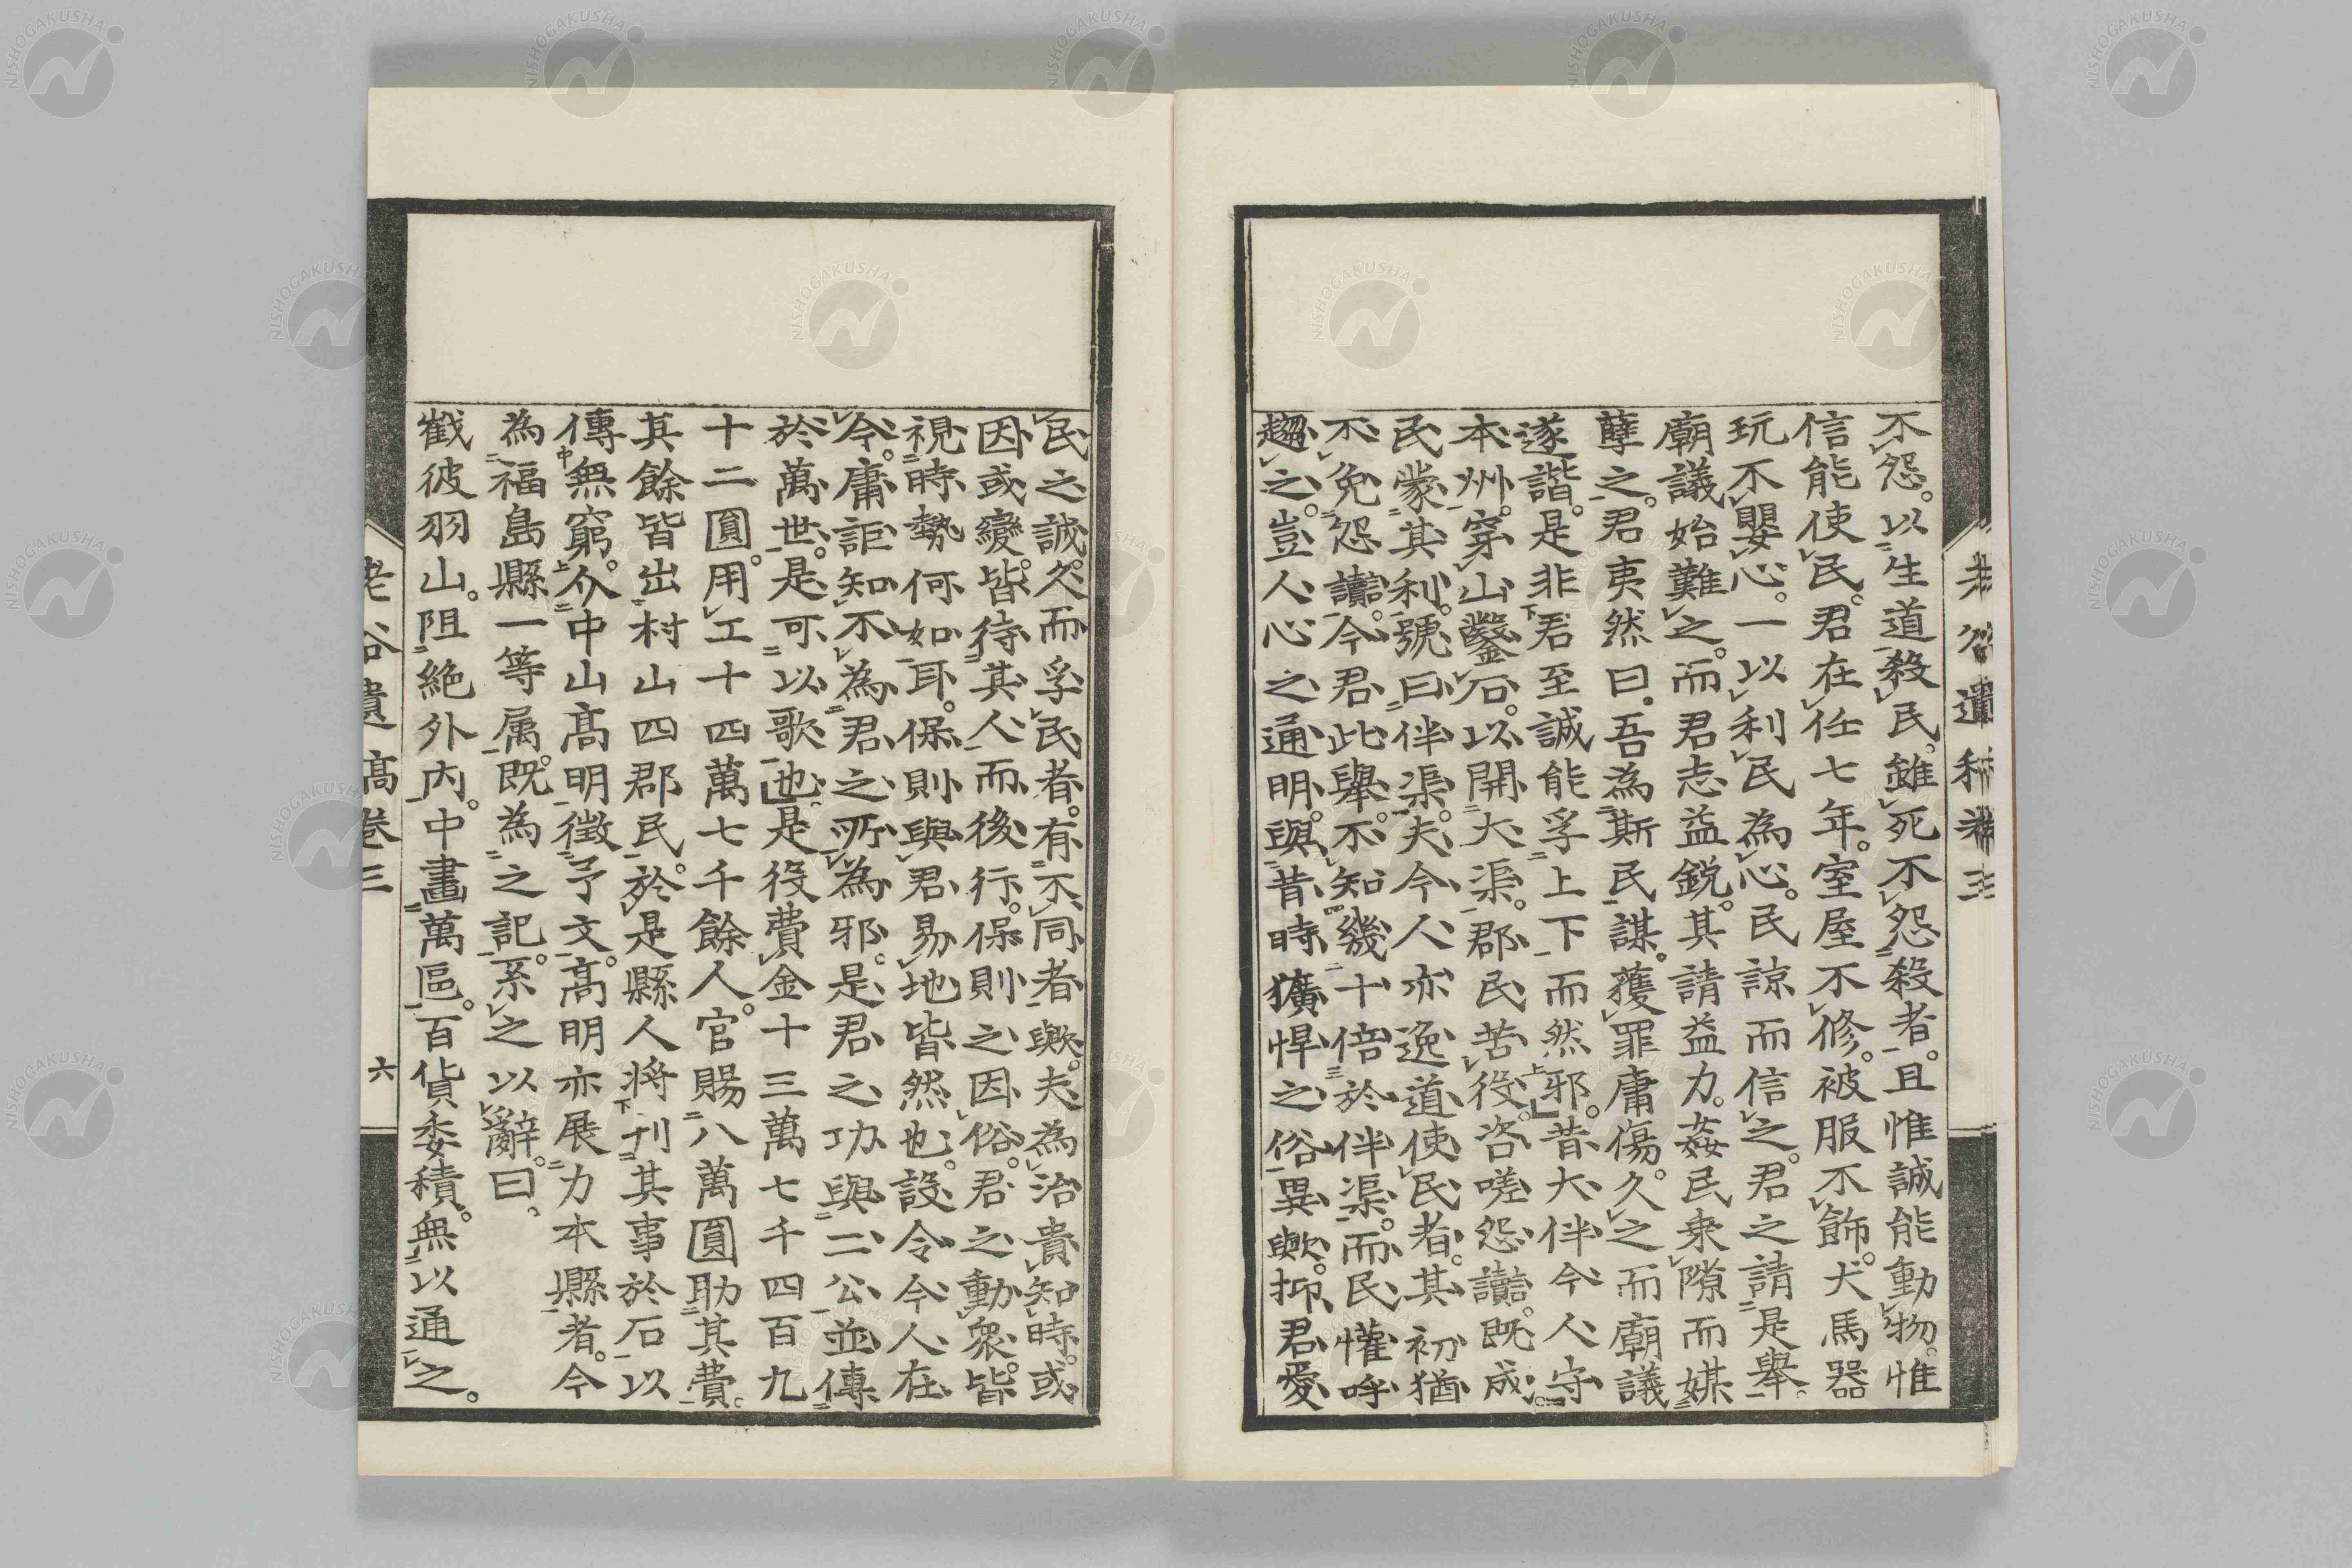 不怨。以生道殺民。雖死不怨殺者。且惟誠能動物。惟
信能使民。君在任七年。室屋不修。被服不飾。犬馬器
玩不嬰心。一以利民為心。民諒而信之。君之請是舉。
廟議始難之。而君志益銳。其請益力。姦民乘隙而媒
孽之。君夷然曰。吾為斯民謀。獲罪庸傷。久之而廟議
遂諧。是非君至誠能孚上下而然邪。昔大伴今人守
本州。穿山鑿石。以開大渠。郡民苦役。咨嗟怨讟。既成。
民蒙其利。號曰伴渠。夫今人亦逸道使民者。其初猶
不免怨讟。今君此舉。不知幾十倍於伴渠。而民懽呼
趨之。豈人心之通明。與昔時獷悍之俗異歟。抑君愛
民之誠。久而孚民者。有不同者歟。夫為治貴知時。或
因或變。皆待其人而後行。保則之因俗。君之動衆。皆
視時勢何如耳。保則與君易地皆然也。設令今人在
今。庸詎知不為君之所為邪。是君之功與二公並傳
於萬世。是可以歌也。是役費金十三萬七千四百九
十二圓。用工十四萬七千餘人。官賜八萬圓助其費。
其餘皆出村山四郡民。於是縣人將刊其事於石以
傳無窮。介中山高明徵予文。高明亦展力本縣者。今
為福島縣一等属。既為之記。系之以辭。曰。
巀彼羽山。阻絶外內。中畫萬區。百貨委積。無以通之。
老谷遺稿卷三
六
NISHOGAKUSHA